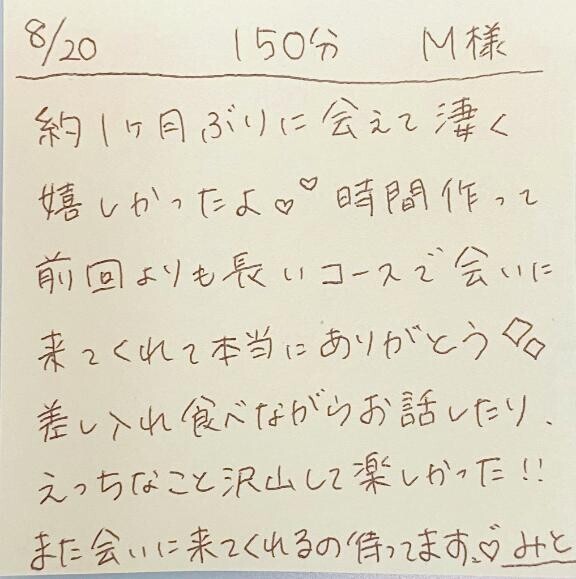 8/20 150分 M様
約1ヶ月ぶりに会えて凄く
嬉しかったよ♡♡時間作って
前回よりも長いコースで会いに
来てくれて本当にありがとう◇◇
差し入れ食べながらお話したり、
えっちなこと沢山して楽しかった!!
また会いに来てくれるの待ってます♡みと